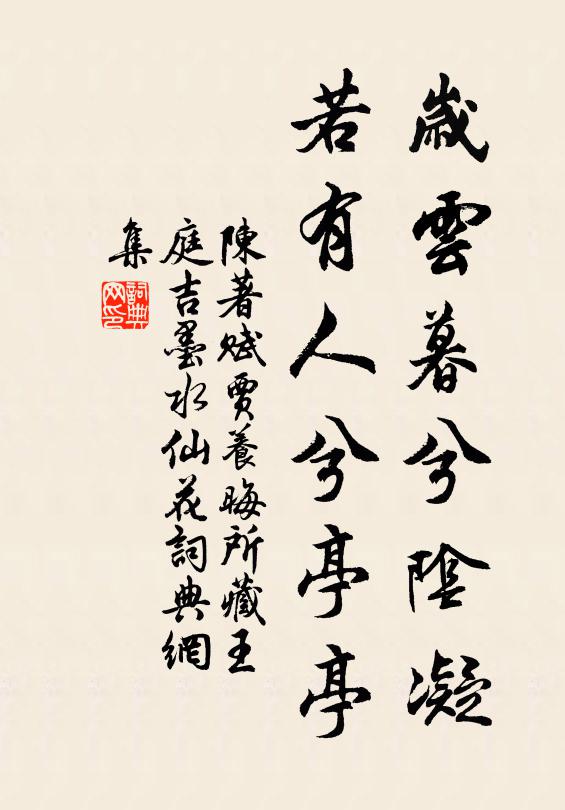 歲雲暮兮陰凝
若有人兮亭亭
陳著賦賈養晦所藏王
庭吉墨水仙花詞典網
集
詞典
网印